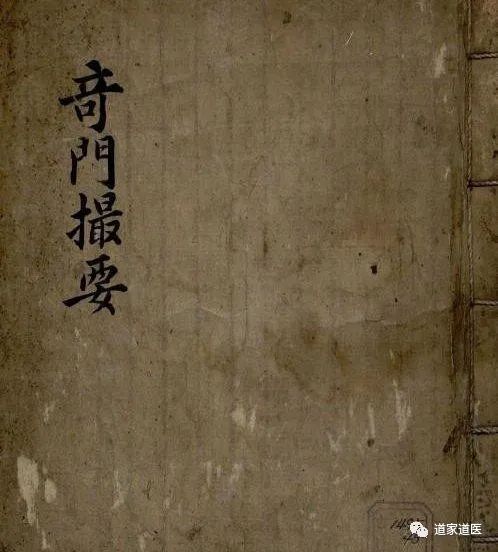 奇門撮要
道家道医